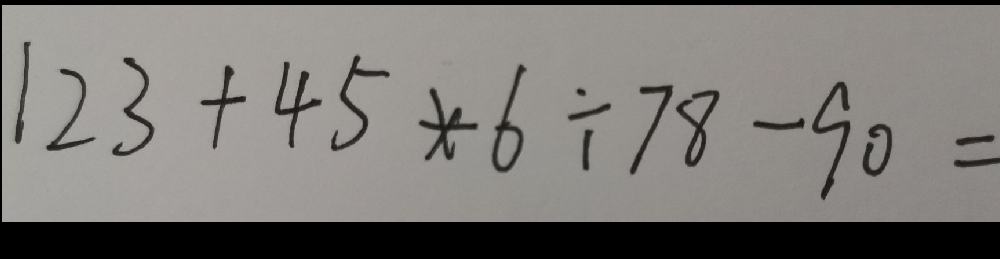 123 + 45 * 6 ÷ 78 - 90 =